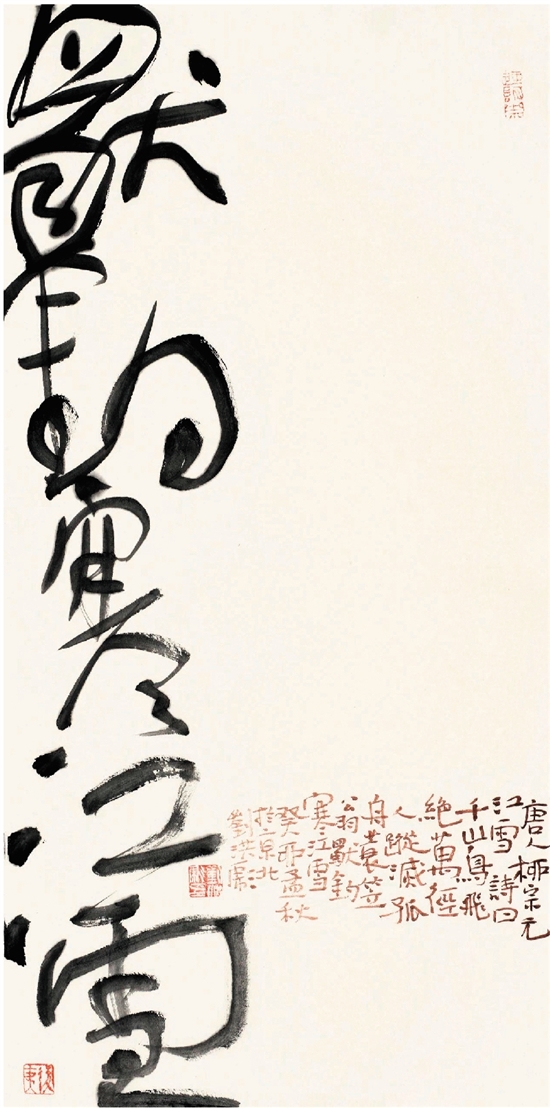 獨釣寒江雪
唐人柳宗元
江雪詩曰
千山鳥飛
絕萬徑
人蹤滅孤
舟蓑笠
翁獨釣
寒江雪
癸卯孟秋
於京北
劉洪彪